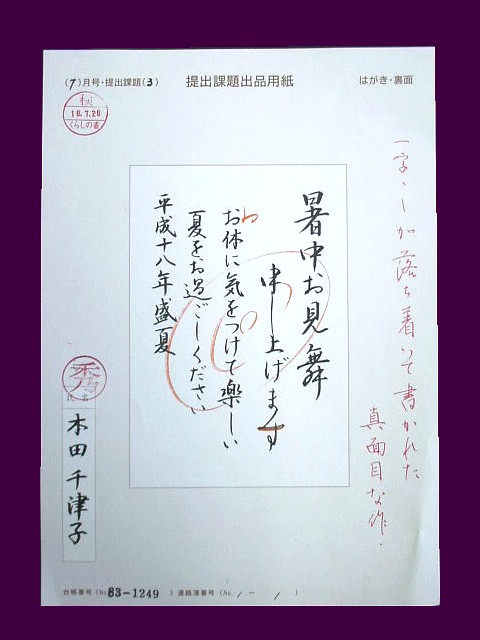 (7)月号・提出課題(3)
提出課題出品用紙
はがき・裏面
18.7.26
くらしの書
一字一字が落ち着いて書かれた
真面目な作.
暑中お見舞
申し上げます
お体に気をつけて楽しい
夏をお過ごしください
平成十八年盛夏
秀
氏名
本田千津子
台帳番号(No.83-1249)連絡簿番号(No. / - / )